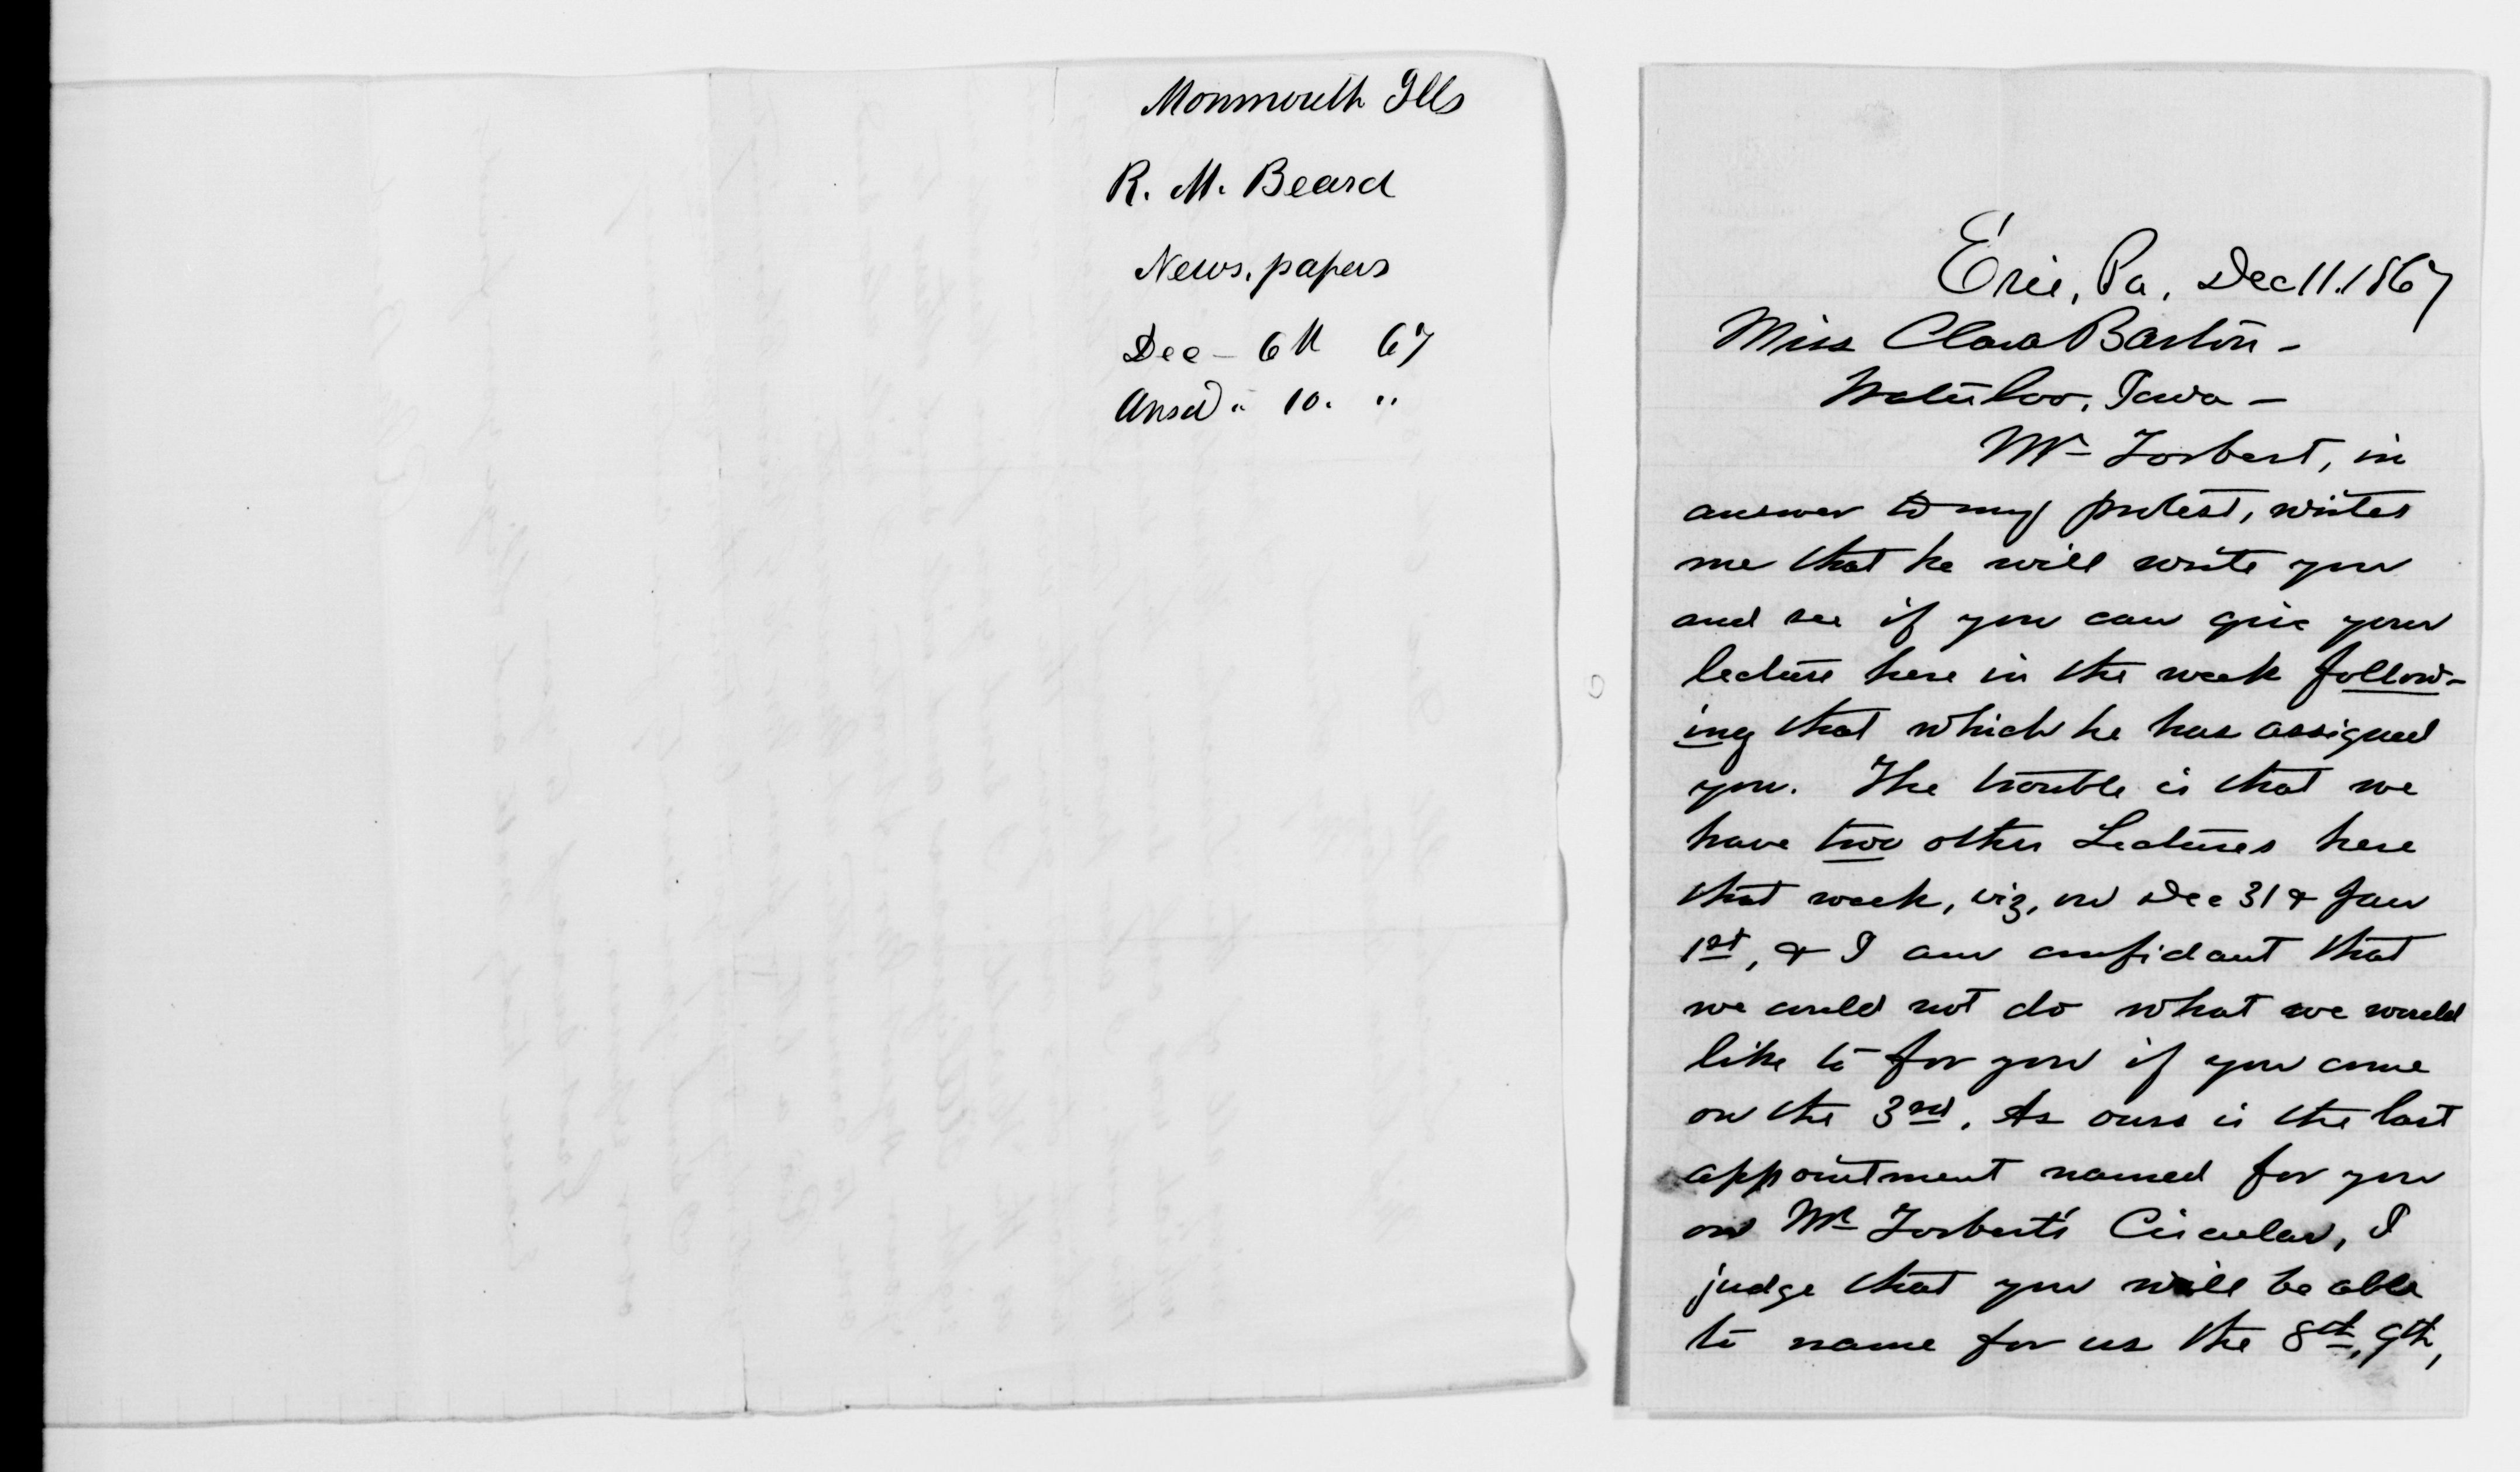 Monmouth Ills
R. M. Beard
News.papers
Dec - 6th 67
Ansd " 10. "
Erie, Pa, Dec 11. 1867
Miss Clara Barton -
Waterloo, Iowa -
Mr Torbert, in
answer to my protest, writes
me that he will write you
and see if you can give your
lecture here in the week follow-
ing that which he has assigned
you. The trouble is that we
have two other Lectures here
that week, viz, on Dec 31 & Jan
1st, & I am confidant that
we could not do what we would
like to for you if you come
on the 3rd. As ours is the last
appointment named for you
on Mr Torbert's Circular, I
judge that you will be able
to name for us the 8th, 9th,